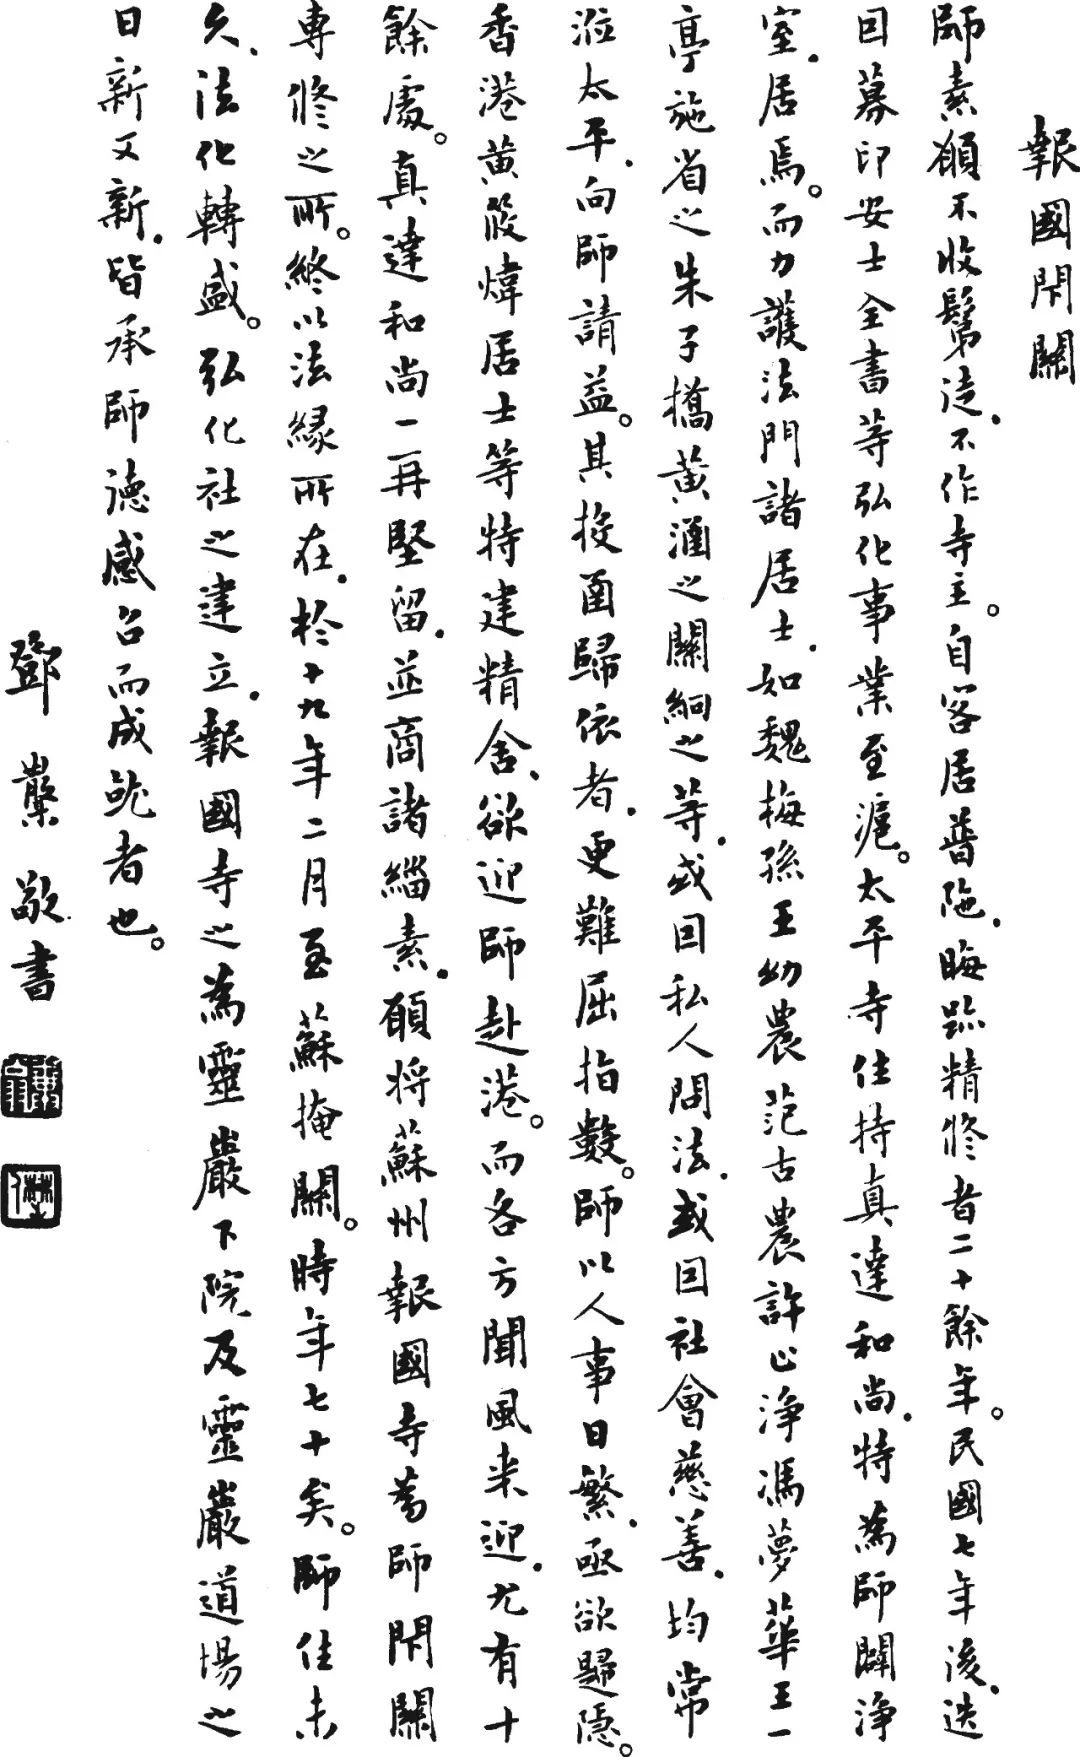 報國閉關
師素願不收鬀徒.不作寺主。自客居普陀.晦跡精修者二十餘年。民國七年後.迭
因募印安士全書等弘化事業至滬。太平寺住持真達和尚.特為師闢淨
室.居焉。而力護法門諸居士.如魏梅蓀王幼農范古農許止淨馮夢華王一
亭施省之朱子橋黃涵之關絅之等.或因私人問法.或因社會慈善.均常
涖太平.向師請益。其投函歸依者.更難屈指數。師以人事日繁.亟欲歸隱。
香港黃筱煒居士等特建精舍.欲迎師赴港。而各方聞風来迎.尤有十
餘處。真達和尚一再堅留.並商諸緇素.願将蘇州報國寺為師閉關
專修之所。終以法緣所在.於十九年二月至蘇掩關。時年七十矣。師住未
久.法化轉盛。弘化社之建立.報國寺之為靈巖下院及靈巖道場之
日新又新.皆承師德感召而成就者也。
鄧 敬書